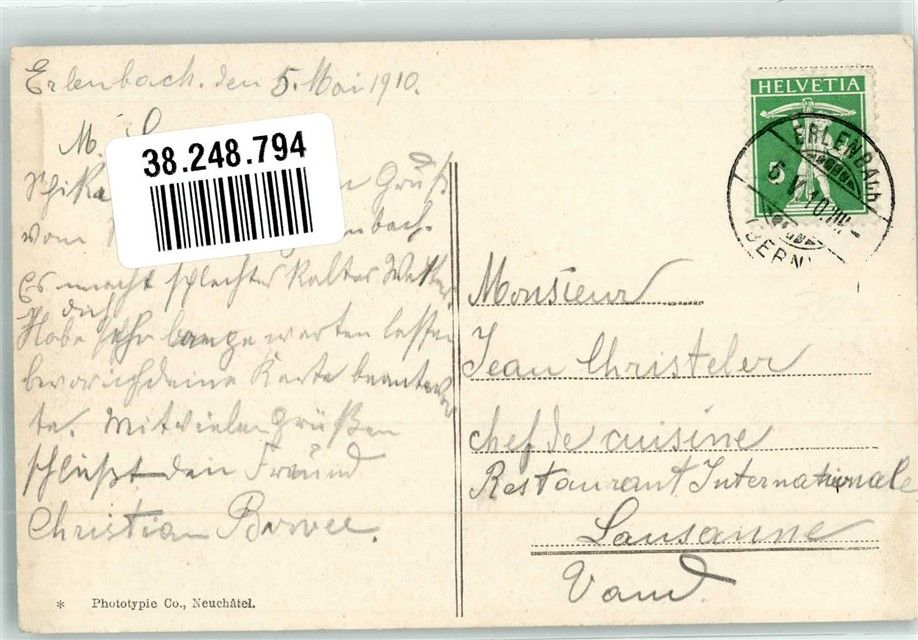 Erlenbach. den 5. Mai 1910.
M.
38.248.794
Schika Gruß
vom enbach.
Es macht schlechtes kaltes Wetter.
dich
Habe sehr lange warten lassen
bevor ich deine Karte beantwor
te. Mit vielen Grüßen
schließt dein Freund
Christian
HELVETIA
ERLENBACH
5 V 10 VIII
(BERN)
Monsieur
Jean Christeler
chef de cuisine
Restaurant Internationale
Lausanne
Vaud.
* Phototypie Co., Neuchâtel.